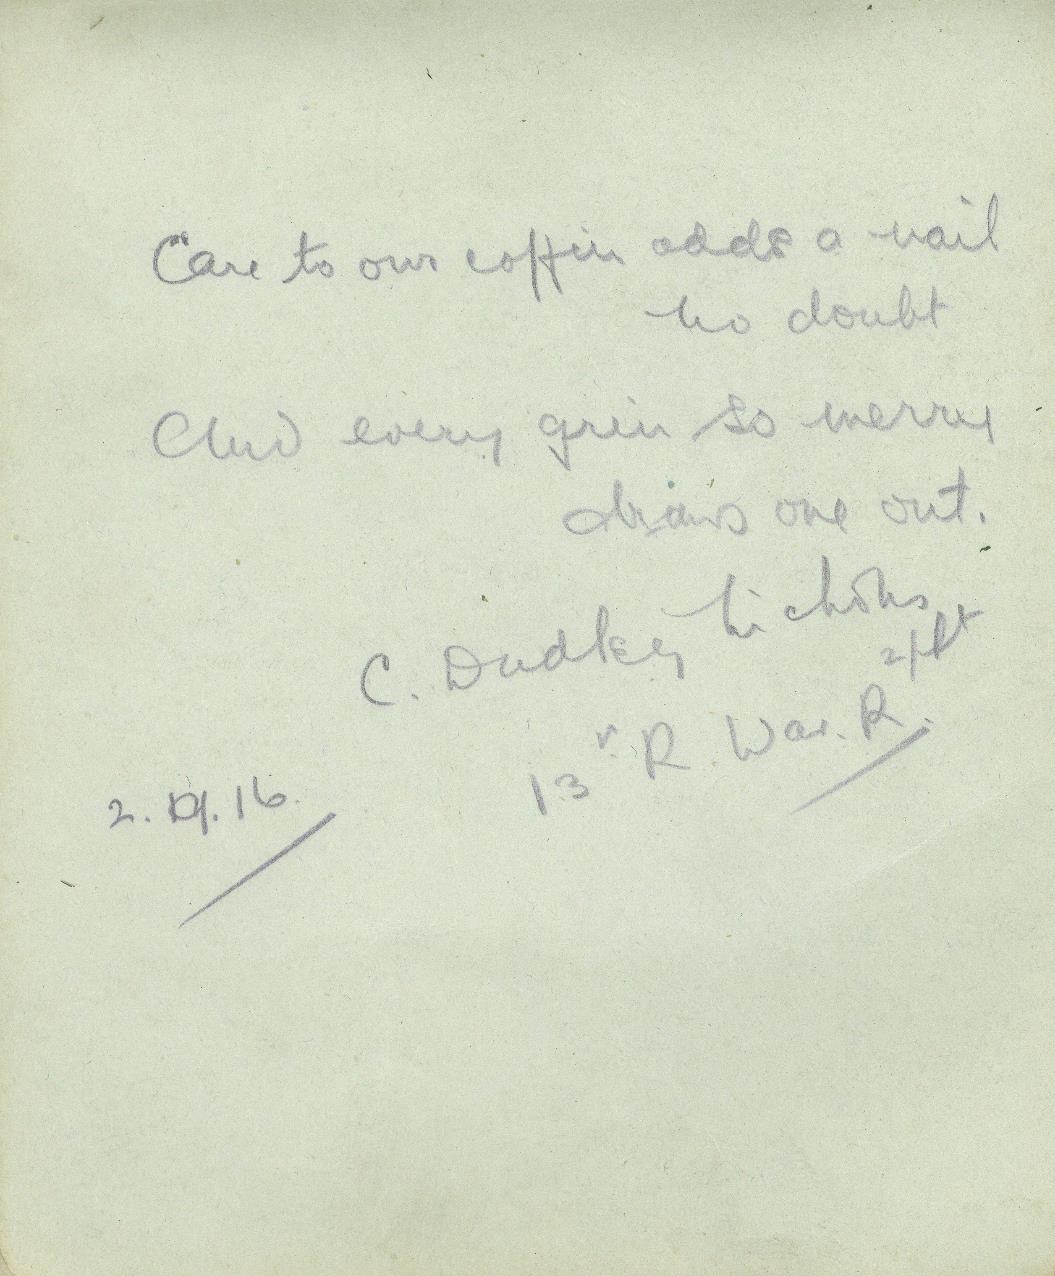 Care to our coffin adds a nail
no doubt
And every grin so merry
draws one out.
C. Dudley Nicholls
2/Lt
13 R. War. R.
2. 16.